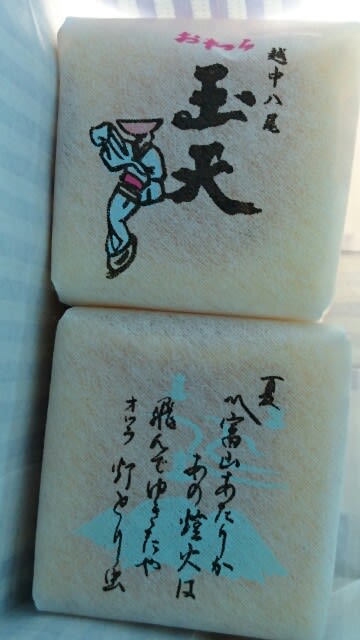 おわら
越中八尾
玉天
夏
〽富山あたりか
あの燈火は
飛んでゆきたや
オワラ 灯とり虫